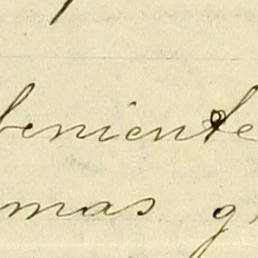 beniente
mas